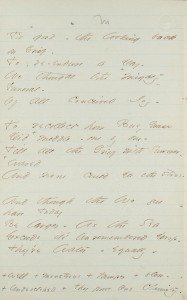 'Tis good - the looking back
on Grief -
To re-endure a Day -
We thought the Mighty
Funeral -
Of All Conceived Joy -
To recollect how Busy Grass
Did meddle - one by one -
Till all the Grief with Summer -
waved
And none could see the stone.
And though the Woe you
have Today
Be larger - As the Sea
Exceeds its Unremembered Drop -
They're Water - equally -